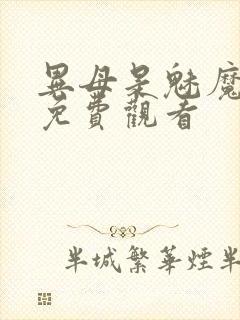 異母呆魅魔
免費觀看
半城繁華煙半